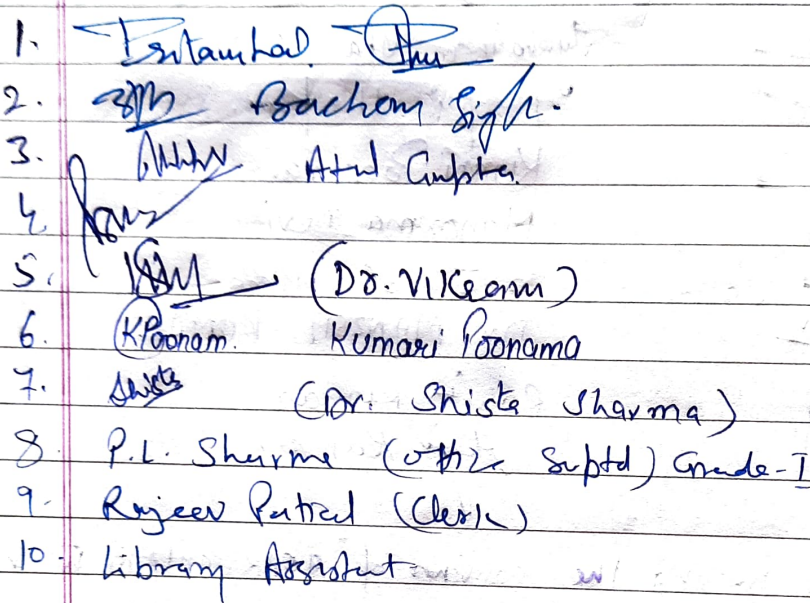 1. Pritam Lal
2. Bachan Singh.
3. Atul Gupta.
4.
5. (Dr. Vikram)
6. KPoonam. Kumari Poonama
7. Shista (Dr. Shista Sharma)
8. P.L. Sharma (Office Suptd) Grade-I
9. Rajeev Patial (Clerk)
10. Library Assistant